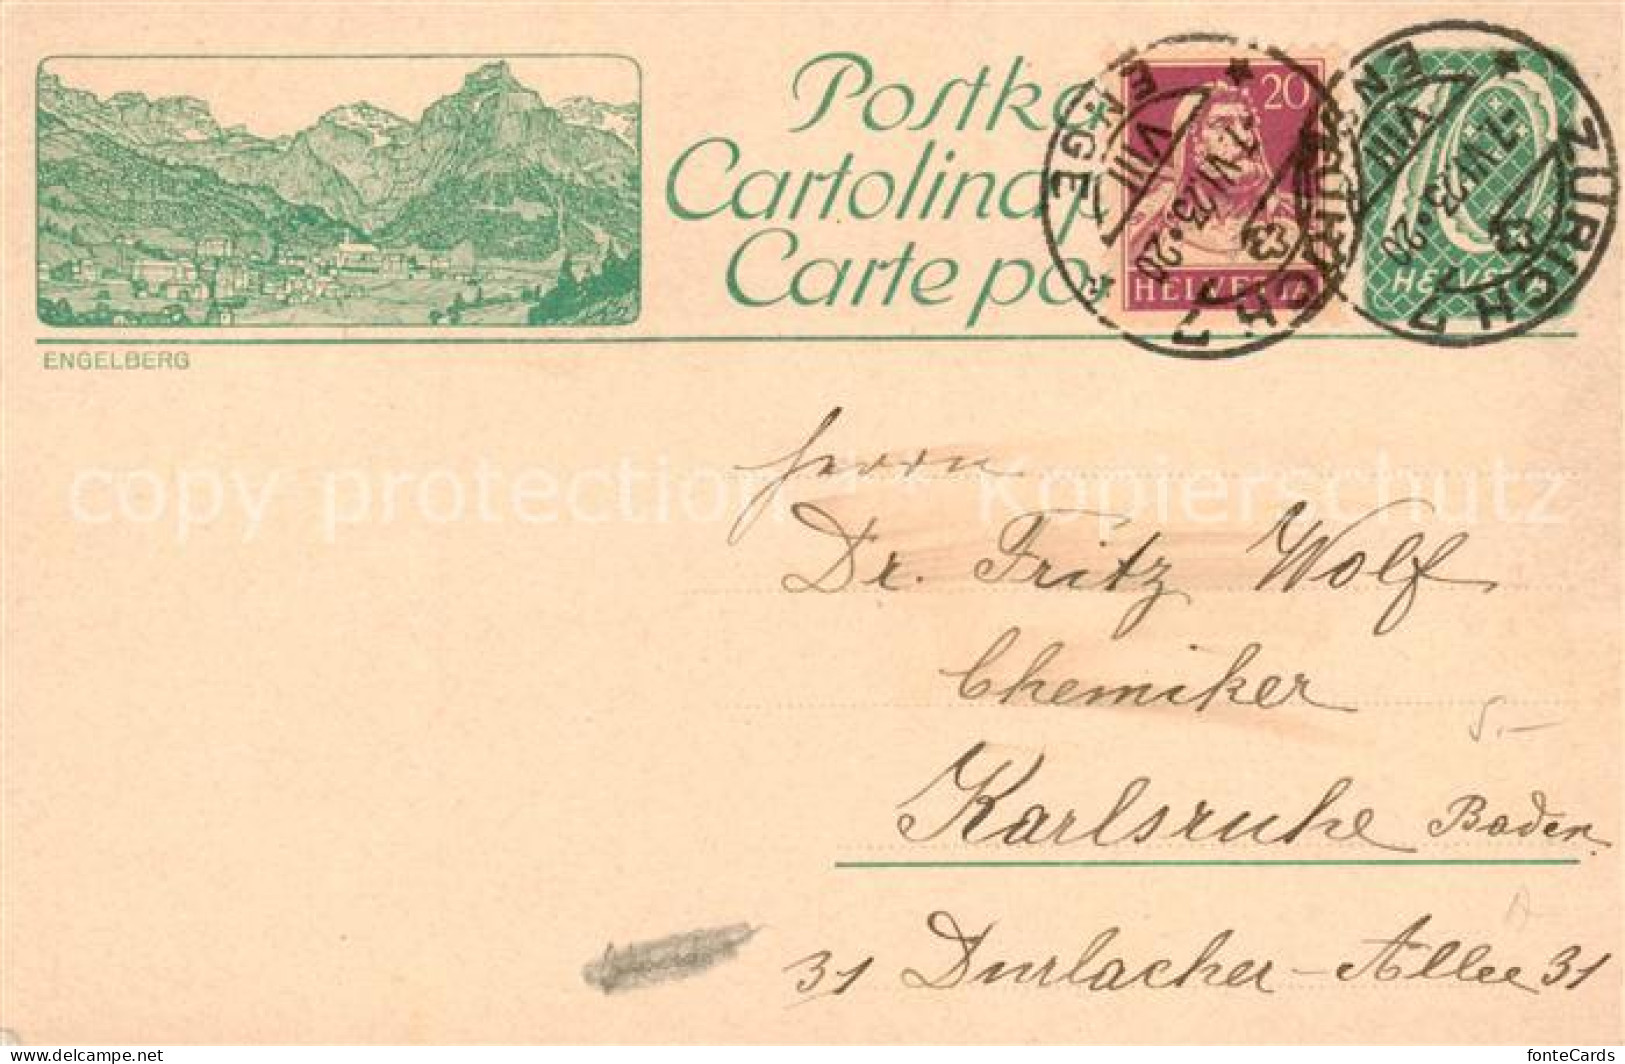 Postka
Cartolina p
Carte po
20
HELVETIA
10
HELVETIA
ZÜRICH 7
ENGE
VIII
-7.VI.23.20
ZÜRICH 7
ENGE
VIII
-7.VI.23.20
ENGELBERG
copy protection * * Kopierschutz
Herrn
Dr. Fritz Wolf
Chemiker
5.-
Karlsruhe Baden.
31 Durlacher-Allee 31
www.delcampe.net
fonteCards